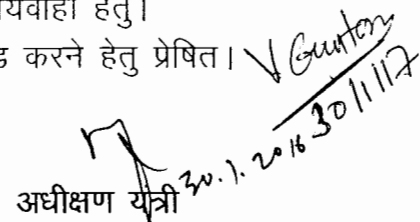 र्यवाही हेतु।
ड करने हेतु प्रेषित।
30/1/17
30.1.2016
अधीक्षण यंत्री